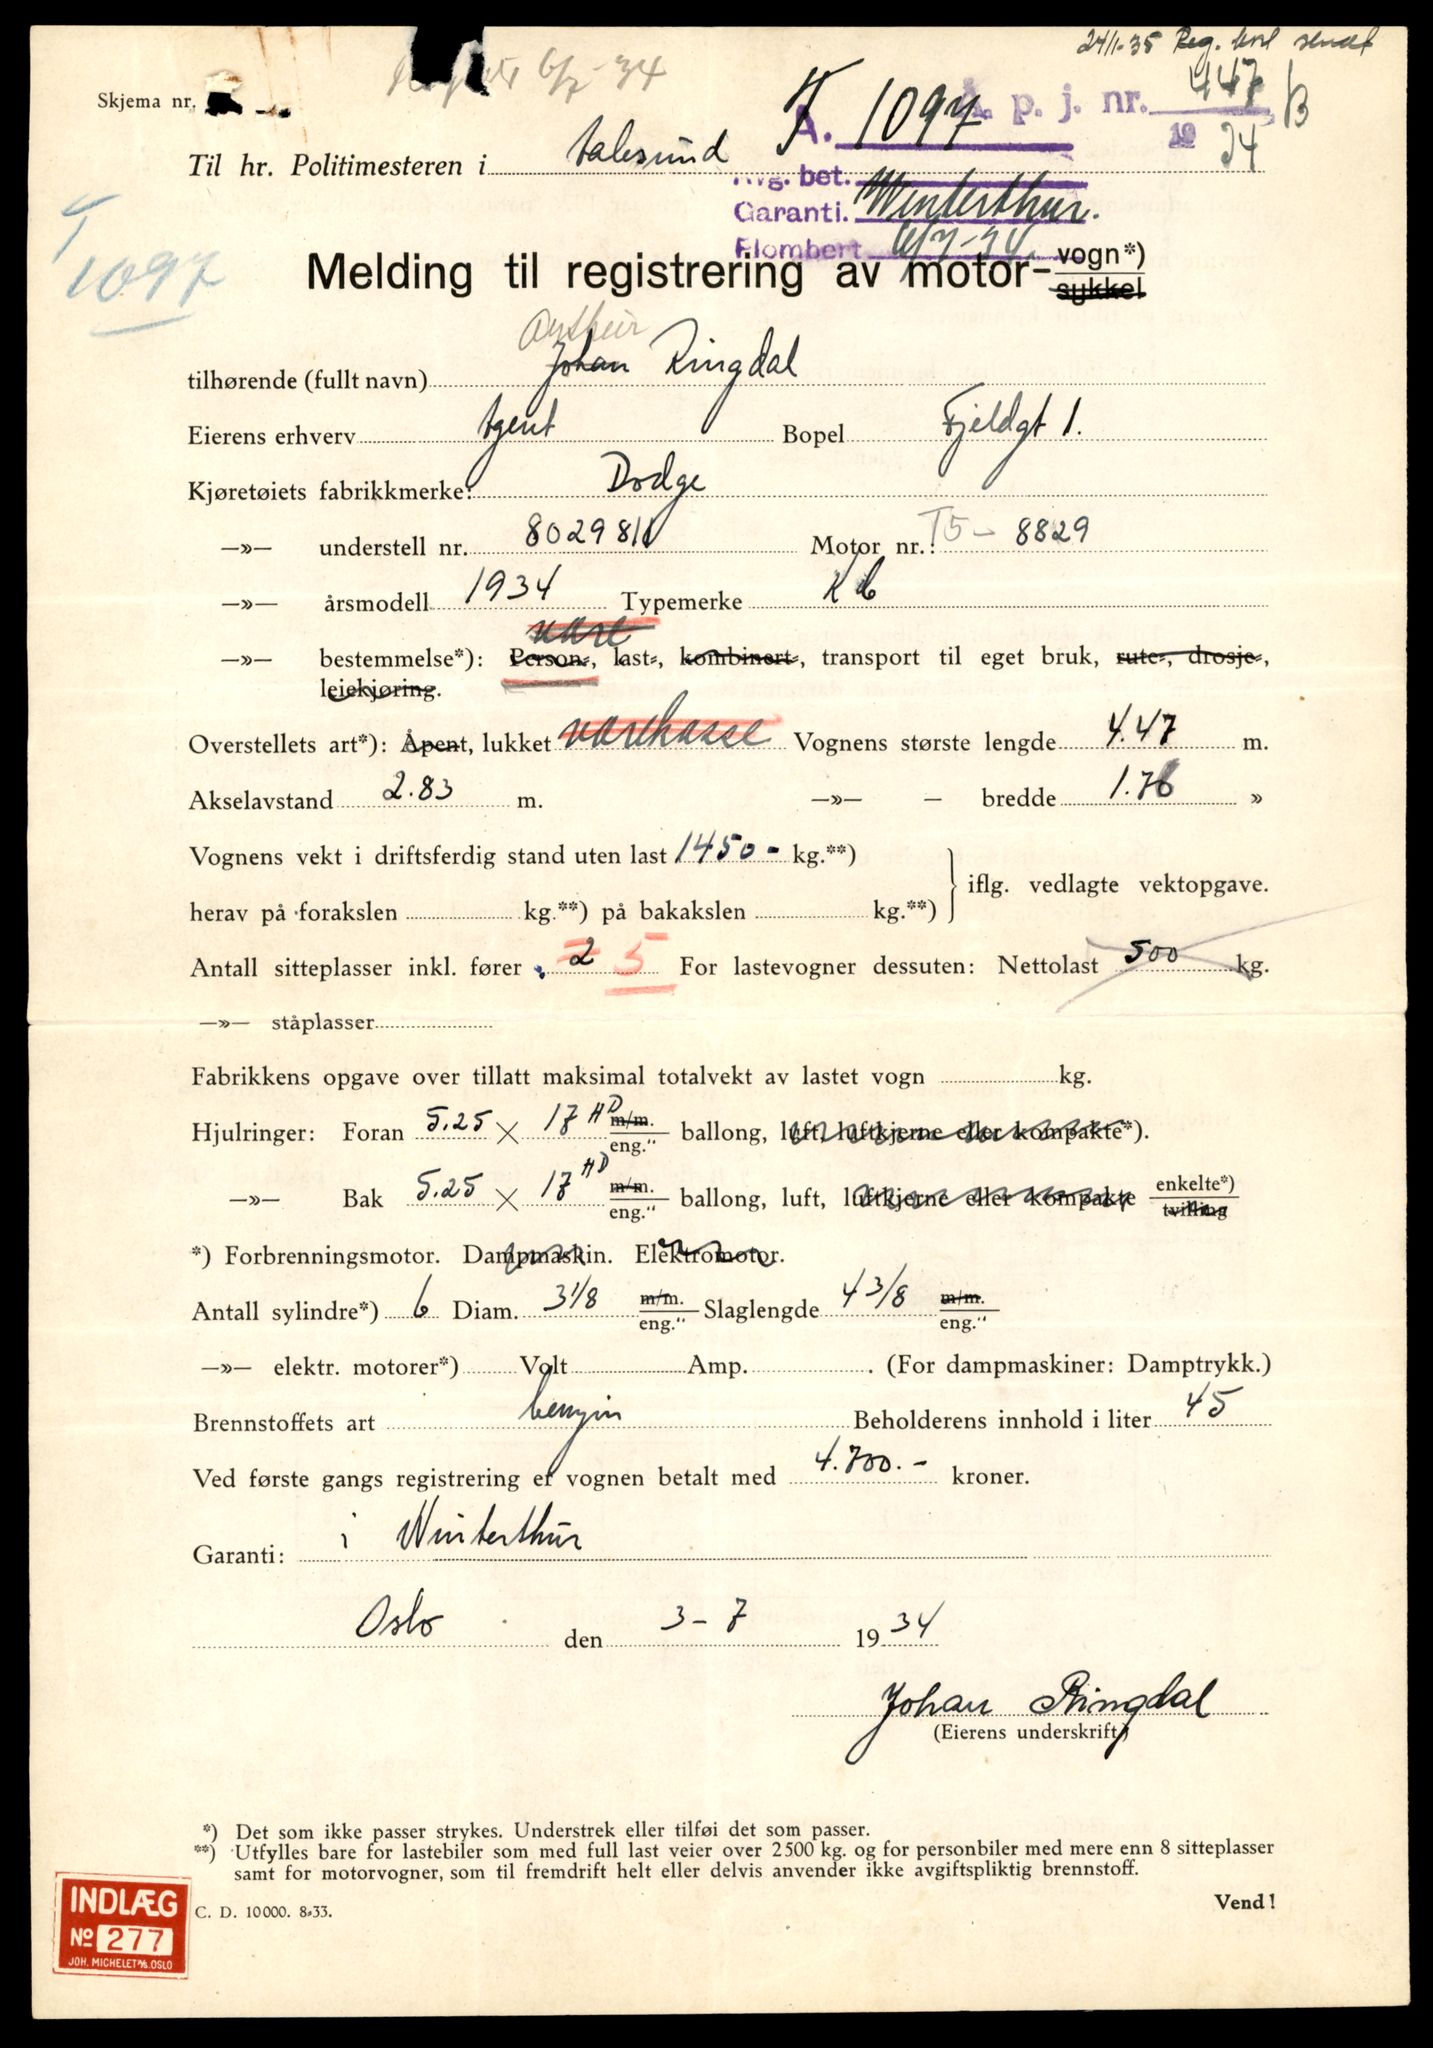 24/1-35 Reg. kort sendt
6/7-34
Skjema nr.
T
A. 1097
Å. p. j. nr. 447/B
19 34
Til hr. Politimesteren i Aalesund
Avg. bet.
Garanti. Winterthur.
Plombert 6/7-34.
T
1097
Melding til registrering av motor- vogn*)
sykkel
Arthur
tilhørende (fullt navn) Johan Ringdal
Eierens erhverv Agent Bopel Fjeldgt 1.
Kjøretøiets fabrikkmerke: Dodge
—»— understell nr. 8029811 Motor nr.: T5- 8829
—»— årsmodell 1934 Typemerke KC
vare
—»— bestemmelse*): Person-, last-, kombinert-, transport til eget bruk, rute-, drosje-,
leiekjøring.
Overstellets art*): Åpent, lukket varekasse Vognens største lengde 4.47 m.
Akselavstand 2.83 m. —»— – bredde 1.76 »
Vognens vekt i driftsferdig stand uten last 1450- kg.**)
iflg. vedlagte vektopgave.
herav på forakslen kg.**) på bakakslen kg.**)
Antall sitteplasser inkl. fører 2 5 For lastevogner dessuten: Nettolast 500 kg.
—»— ståplasser
Fabrikkens opgave over tillatt maksimal totalvekt av lastet vogn kg.
Hjulringer: Foran 5.25 × 17 HD m/m. eng." ballong, luft, luftkjerne eller kompakte*).
—»— Bak 5.25 × 17 HD m/m. eng." ballong, luft, luftkjerne eller kompakte enkelte*) tvilling
*) Forbrenningsmotor. Dampmaskin. Elektromotor.
Antall sylindre*) 6 Diam. 3 1/8 m/m. eng." Slaglengde 4 3/8 m/m. eng."
—»— elektr. motorer*) Volt Amp. . (For dampmaskiner: Damptrykk.)
Brennstoffets art benzin Beholderens innhold i liter 45
Ved første gangs registrering er vognen betalt med 4.700.- kroner.
Garanti: i Winterthur
Oslo den 3-7 1934
Johan Ringdal
(Eierens underskrift)
*) Det som ikke passer strykes. Understrek eller tilføi det som passer.
**) Utfylles bare for lastebiler som med full last veier over 2500 kg. og for personbiler med mere enn 8 sitteplasser
samt for motorvogner, som til fremdrift helt eller delvis anvender ikke avgiftspliktig brennstoff.
Vend!
C. D. 10000. 8-33.
INDLÆG
No 277
JOH. MICHELET A/S. OSLO